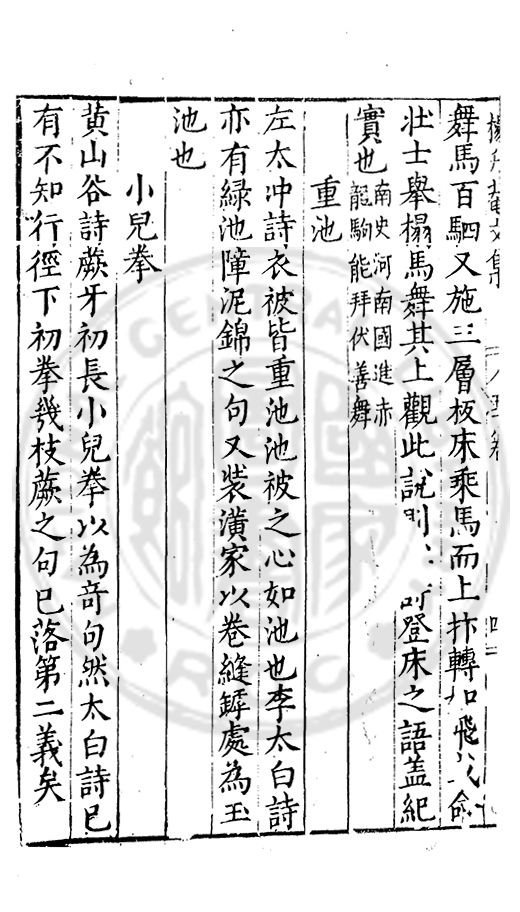 舞馬百駟又施三層板床乘馬而上抃轉如飛或命
壯士舉榻馬舞其上觀此說則登床之語蓋紀
實也南史河南國進赤龍駒能拜伏善舞
重池
左太冲詩衣被皆重池池被之心如池也李太白詩
亦有緑池障泥錦之句又装潢家以卷縫罅處為玉
池也
小兒拳
黄山谷詩蕨牙初長小兒拳以為奇句然太白詩已
有不知行徑下初拳幾枝蕨之句已落第二義矣